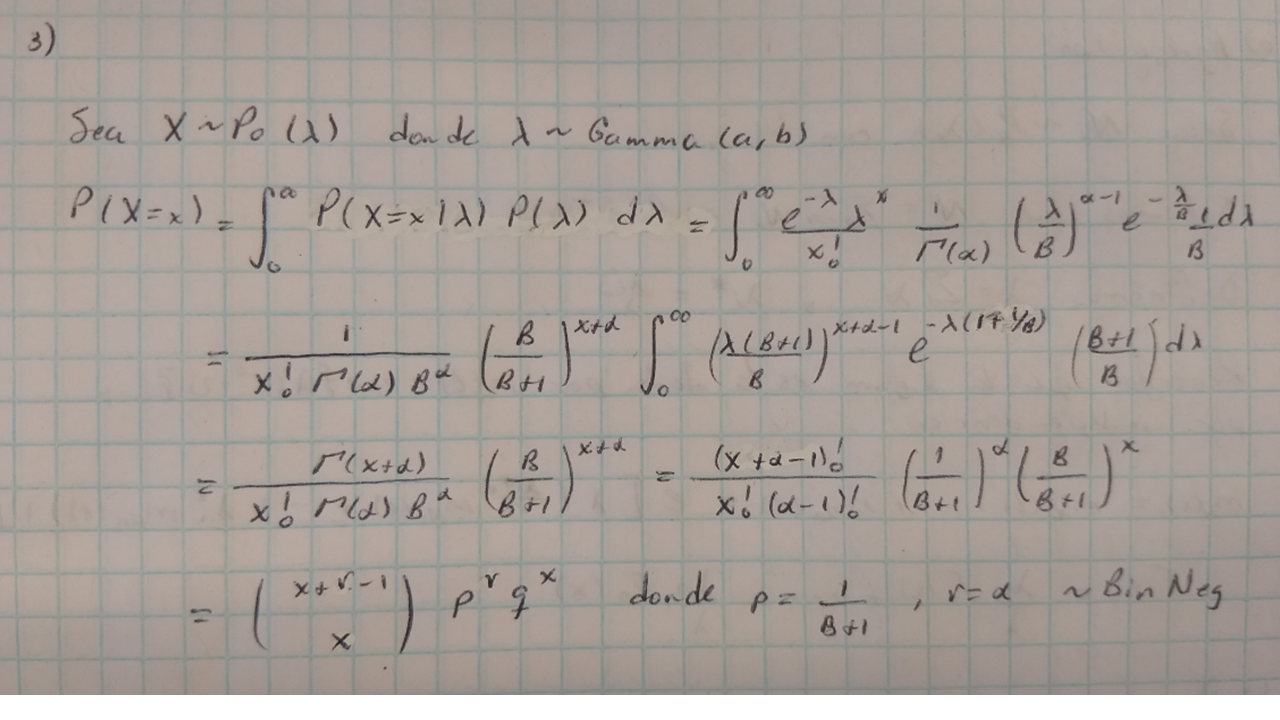 3)
Sea X ~ Po (λ) donde λ ~ Gamma (a, b)
P(X=x) = ∫₀^∞ P(X=x|λ) P(λ) dλ = ∫₀^∞ (e^{-λ} λ^x)/(x!) 1/Γ(α) (λ/B)^{α-1} e^{-λ/B} 1/B dλ
= 1/(x! Γ(α) B^α) (B/(B+1))^{x+α} ∫₀^∞ (λ(B+1)/B)^{x+α-1} e^{-λ(1+1/B)} ((B+1)/B) dλ
= Γ(x+α)/(x! Γ(α) B^α) (B/(B+1))^{x+α} = (x+α-1)!/(x! (α-1)!) (1/(B+1))^α (B/(B+1))^x
= (x+r-1 x) p^r q^x donde p = 1/(B+1), r=α ~ Bin Neg